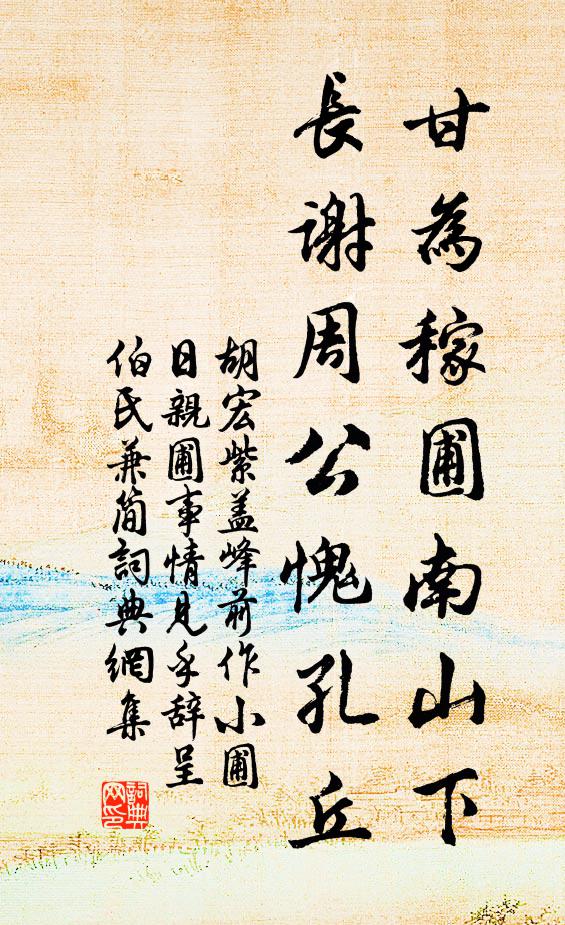 甘為稼圃南山下
長谢周公愧孔丘
胡宏紫盖峰前作小圃
日親圃事情見乎辞呈
伯氏兼简詞典網集
詞典网印